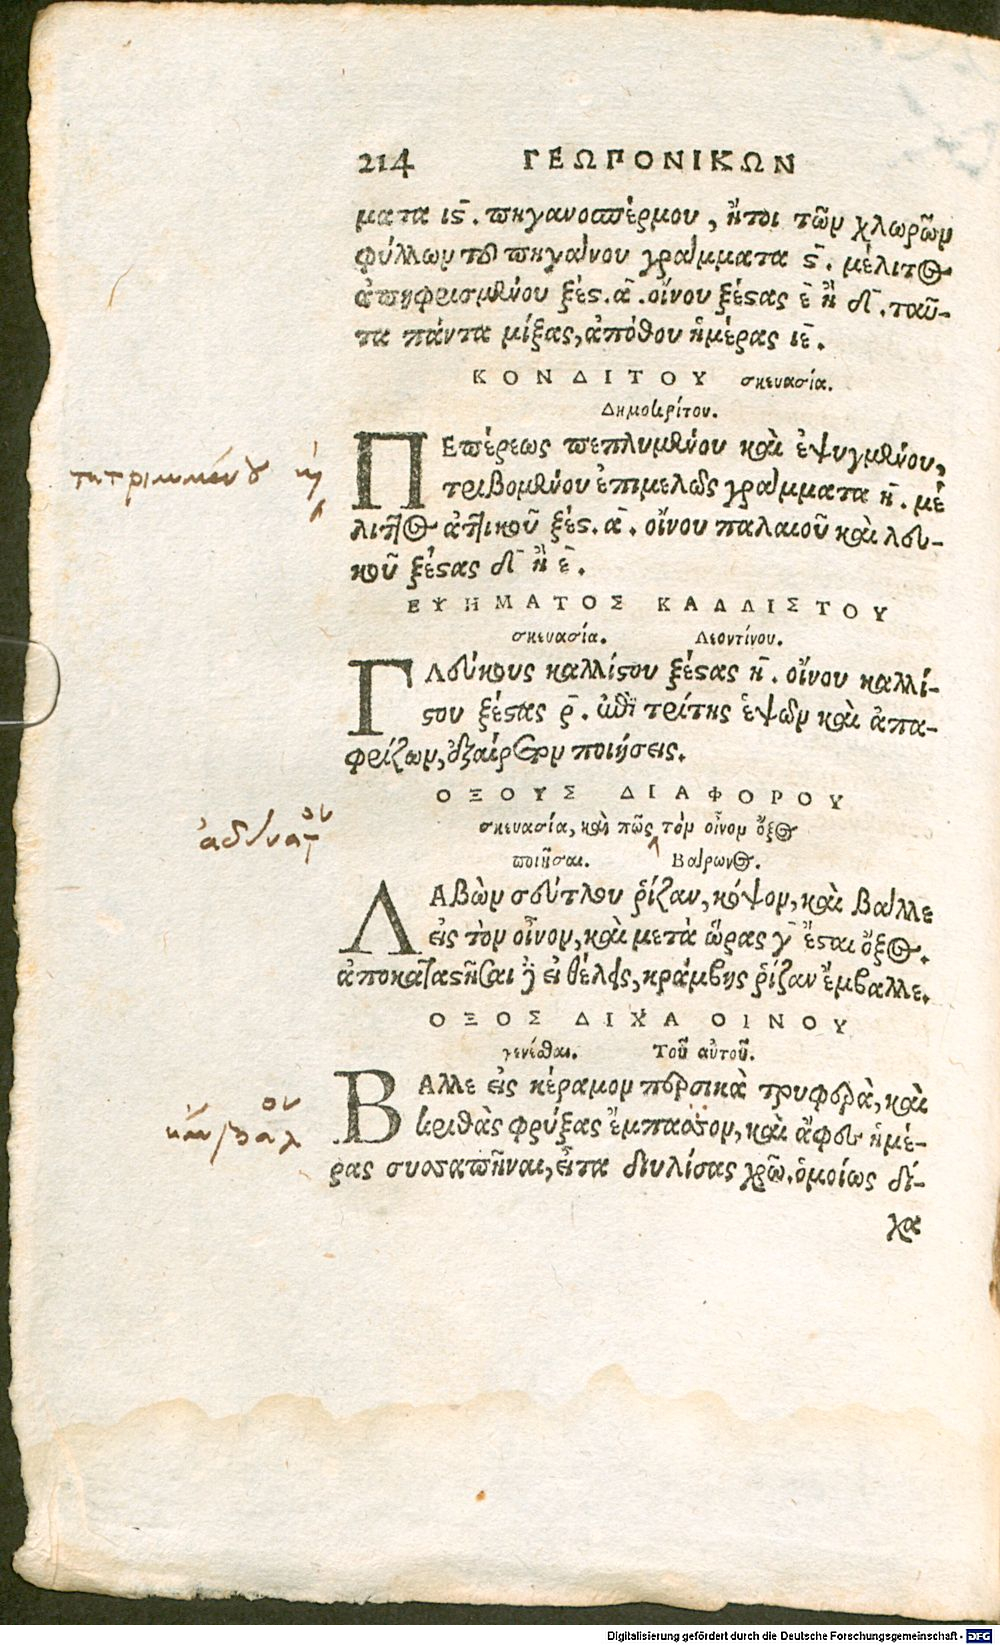 214 ΓΕΩΠΟΝΙΚΩΝ
ματα ις̄. πηγανοσπέρμου, ἤτοι τῶν χλωρῶν
φύλλων τοῦ πηγάνου γράμματα ς̄. μέλιτος
ἀπηφρισμένου ξές. ᾱ. οἴνου ξέςας ε̄ ἢ δ̄. ταῦ-
τα πάντα μίξας, ἀπόθου ἡμέρας ιε̄.
ΚΟΝΔΙΤΟΥ σκευασία.
Δημοκρίτου.
ΠΕπέρεως πεπλυμένου καὶ ἐψυγμένου,
τριβομένου ἐπιμελῶς γράμματα η̄. μέ
λιττος ἀττικοῦ ξές. ᾱ. οἴνου παλαιοῦ καὶ λευ-
κοῦ ξέςας δ̄ ἢ ε̄.
ΕΨΗΜΑΤΟΣ ΚΑΛΛΙΣΤΟΥ
σκευασία. Λεοντίνου.
ΓΛεύκους καλλίςου ξέςας η̄. οἴνου καλλί-
ςου ξέςας ρ̄. ἐπὶ τρίτης ἑψῶν καὶ ἀπα-
φρίζων, ἐξαίρετον ποιήσεις.
ΟΞΟΥΣ ΔΙΑΦΟΡΟΥ
σκευασία, καὶ πῶς τὸν οἶνον ὄξος
ποιῆσαι. Βάρωνος.
ΛΑβὼν σεύτλου ῥίζαν, κόψον, καὶ βάλλε
εἰς τὸν οἶνον, καὶ μετὰ ὥρας γ̄ ἔςαι ὄξος.
ἀποκαταςῆσαι δὲ εἰ θέλεις, κράμβης ῥίζαν ἔμβαλλε.
ΟΞΟΣ ΔΙΧΑ ΟΙΝΟΥ
γενέσθαι. Τοῦ αὐτοῦ.
ΒΑλλε εἰς κέραμον περσικὰ τρυφερὰ, καὶ
κριθὰς φρύξας ἔμπασσον, καὶ ἄφες ἡμέ-
ρας συσσαπῆναι, εἶτα διυλίσας χρῶ. ὁμοίως δί-
χα